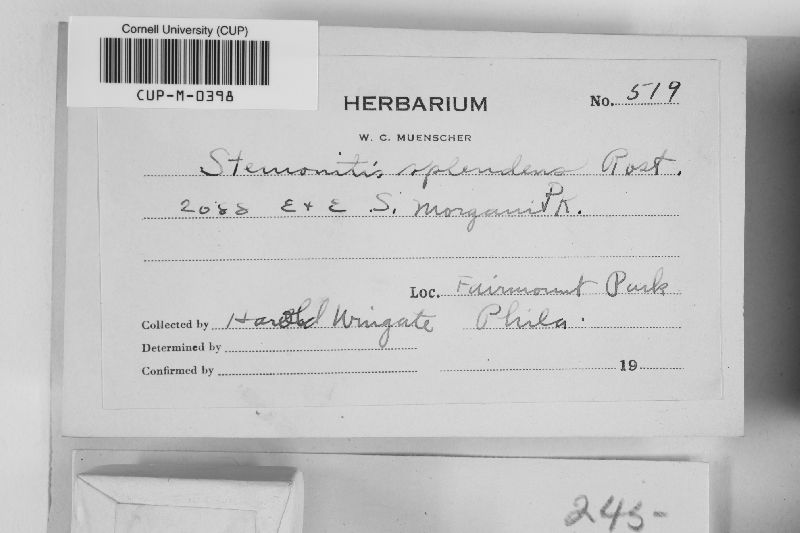 Cornell University (CUP)
CUP-M-0398
HERBARIUM
No. 519
W. C. MUENSCHER
Stemonitis splendens Rost.
2088 E + E S. Morgani Pk.
Loc. Fairmount Park
Collected by Harold Wingate Phila.
Determined by
Confirmed by
19
245-